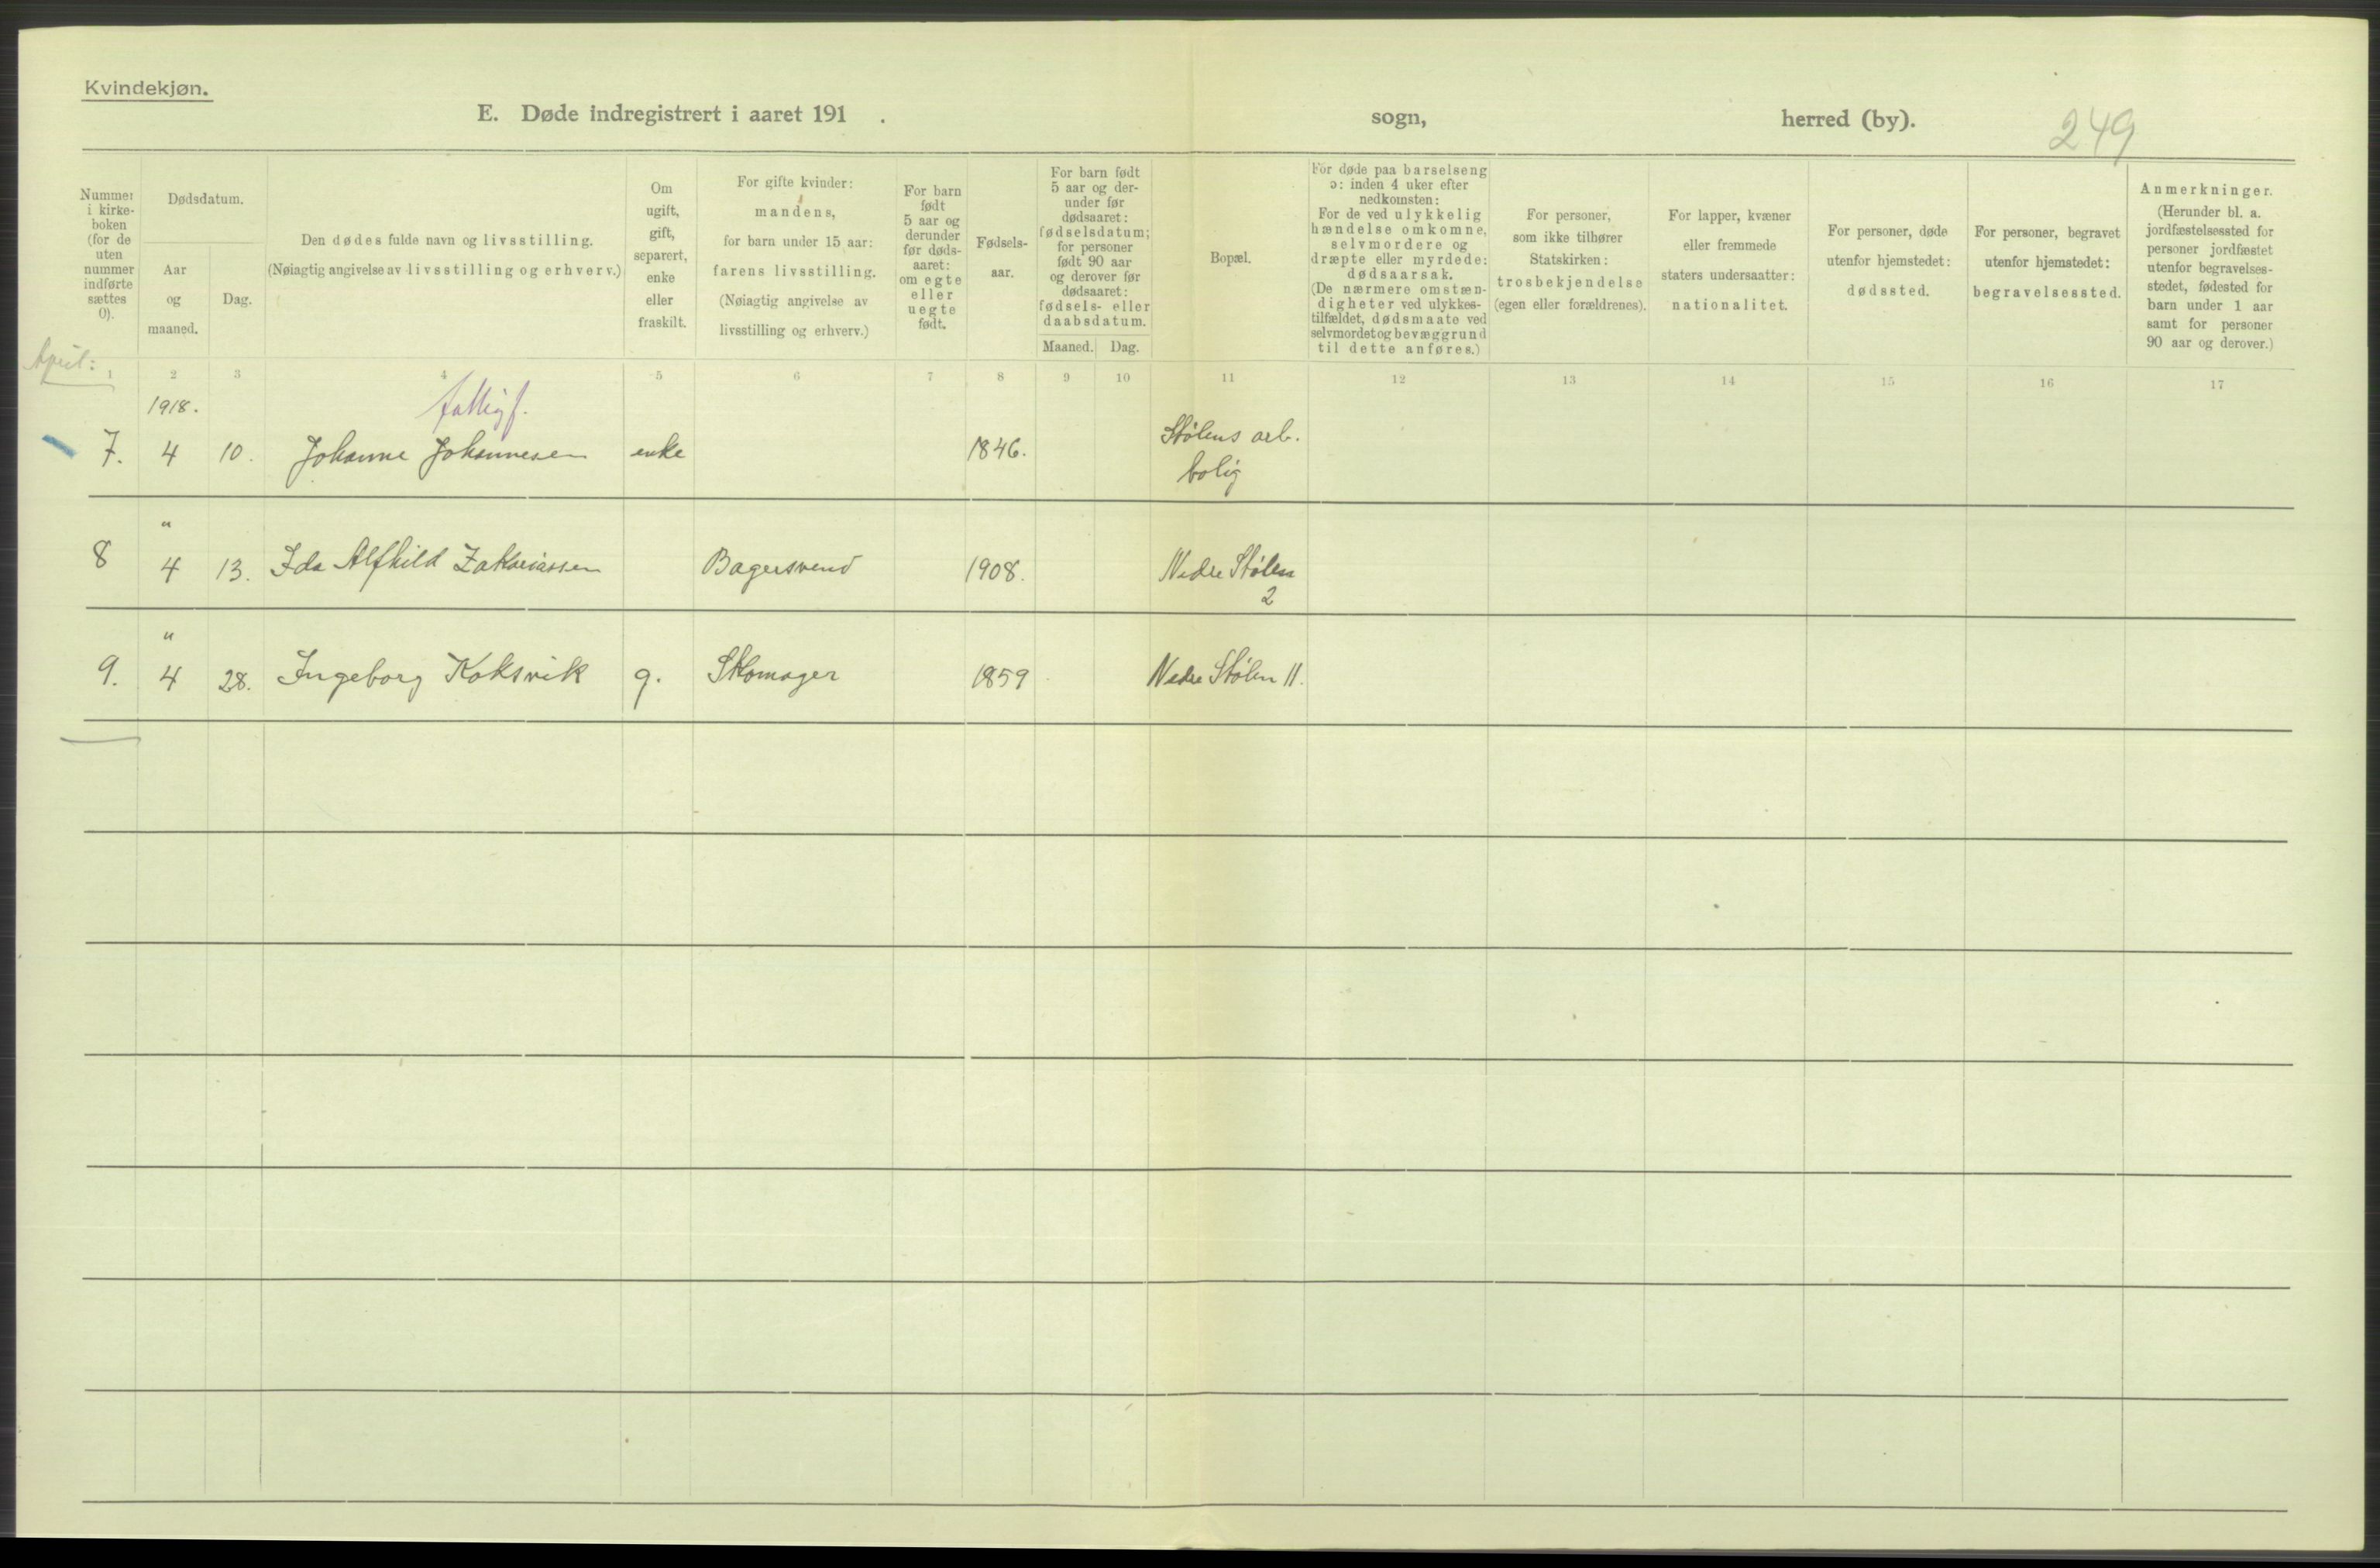 Kvindekjøn.
E. Døde indregistrert i aaret 191 . sogn, herred (by).
249
Nummer
i kirke-
boken
(for de
uten
nummer
indførte
sættes
0).
Dødsdatum.
Aar
og
maaned.
Dag.
Den dødes fulde navn og livsstilling.
(Nøiagtig angivelse av livsstilling og erhverv.)
Om
ugift,
gift,
separert,
enke
eller
fraskilt.
For gifte kvinder:
mandens,
for barn under 15 aar:
farens livsstilling.
(Nøiagtig angivelse av
livsstilling og erhverv.)
For barn
født
5 aar og
derunder
før døds-
aaret:
om egte
eller
uegte
født.
Fødsels-
aar.
For barn født
5 aar og der-
under før
dødsaaret:
fødselsdatum;
for personer
født 90 aar
og derover før
dødsaaret:
fødsels- eller
daabsdatum.
Maaned. Dag.
Bopæl.
For døde paa barselseng
ɔ: inden 4 uker efter
nedkomsten:
For de ved ulykkelig
hændelse omkomne,
selvmordere og
dræpte eller myrdede:
dødsaarsak.
(De nærmere omstæn-
digheter ved ulykkes-
tilfældet, dødsmaate ved
selvmordet og bevæggrund
til dette anføres.)
For personer,
som ikke tilhører
Statskirken:
trosbekjendelse
(egen eller forældrenes).
For lapper, kvæner
eller fremmede
staters undersaatter:
nationalitet.
For personer, døde
utenfor hjemstedet:
dødssted.
For personer, begravet
utenfor hjemstedet:
begravelsessted.
Anmerkninger.
(Herunder bl. a.
jordfæstelsessted for
personer jordfæstet
utenfor begravelses-
stedet, fødested for
barn under 1 aar
samt for personer
90 aar og derover.)
April:
1 2 3 4 5 6 7 8 9 10 11 12 13 14 15 16 17
1918. fattigf.
7. 4 10. Johanne Johannesen enke 1846. Stølens arb.
bolig
"
8 4 13. Ida Alfhild Zakariassen Bagersvend 1908. Nedre Stølen
2
"
9. 4 28. Ingeborg Koksvik g. Skomager 1859 Nedre Stølen 11.